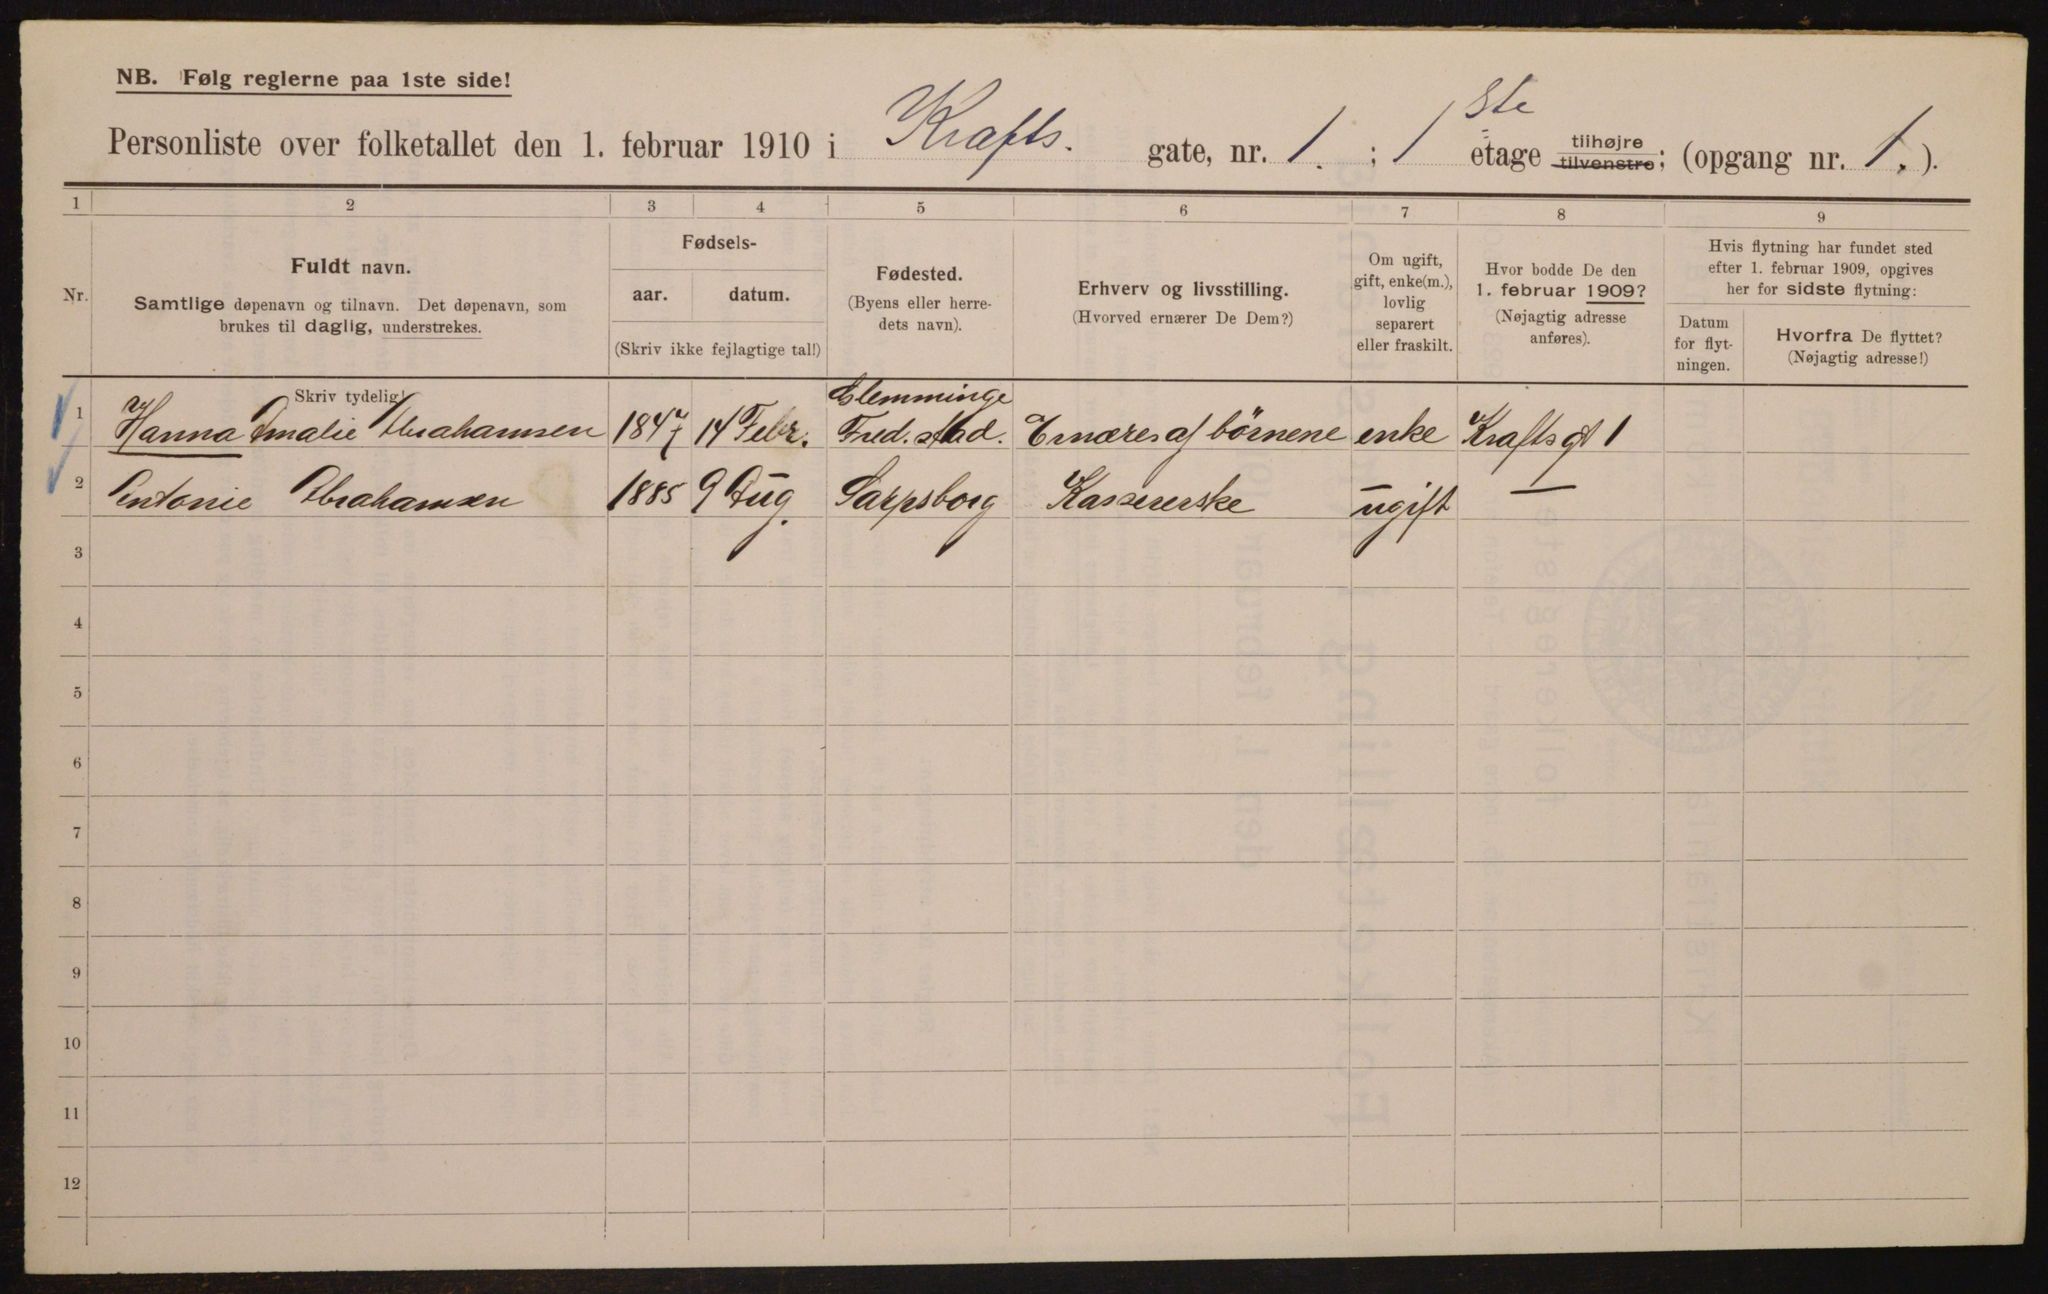 NB. Følg reglerne paa 1ste side!
Personliste over folketallet den 1. februar 1910 i Krafts. gate, nr. 1. ; 1 ste etage tilhøjre tilvenstre; (opgang nr. 1. ).
1 2 3 4 5 6 7 8 9
Nr.
Fuldt navn.
Samtlige døpenavn og tilnavn. Det døpenavn, som
brukes til daglig, understrekes.
Fødsels-
aar. datum.
(Skriv ikke fejlagtige tal!)
Fødested.
(Byens eller herre-
dets navn).
Erhverv og livsstilling.
(Hvorved ernærer De Dem?)
Om ugift,
gift, enke(m.),
lovlig
separert
eller fraskilt.
Hvor bodde De den
1. februar 1909?
(Nøjagtig adresse
anføres).
Hvis flytning har fundet sted
efter 1. februar 1909, opgives
her for sidste flytning:
Datum
for flyt-
ningen.
Hvorfra De flyttet?
(Nøjagtig adresse!)
Skriv tydelig!
Glemminge
1 Hanna Amalie Abrahamsen 1847 14 Febr. Fred.stad. Ernæres af börnene enke Krafts gt 1
2 Antonie Abrahamsen 1885 9 Aug. Sarpsborg Kassererske ugift —
3
4
5
6
7
8
9
10
11
12